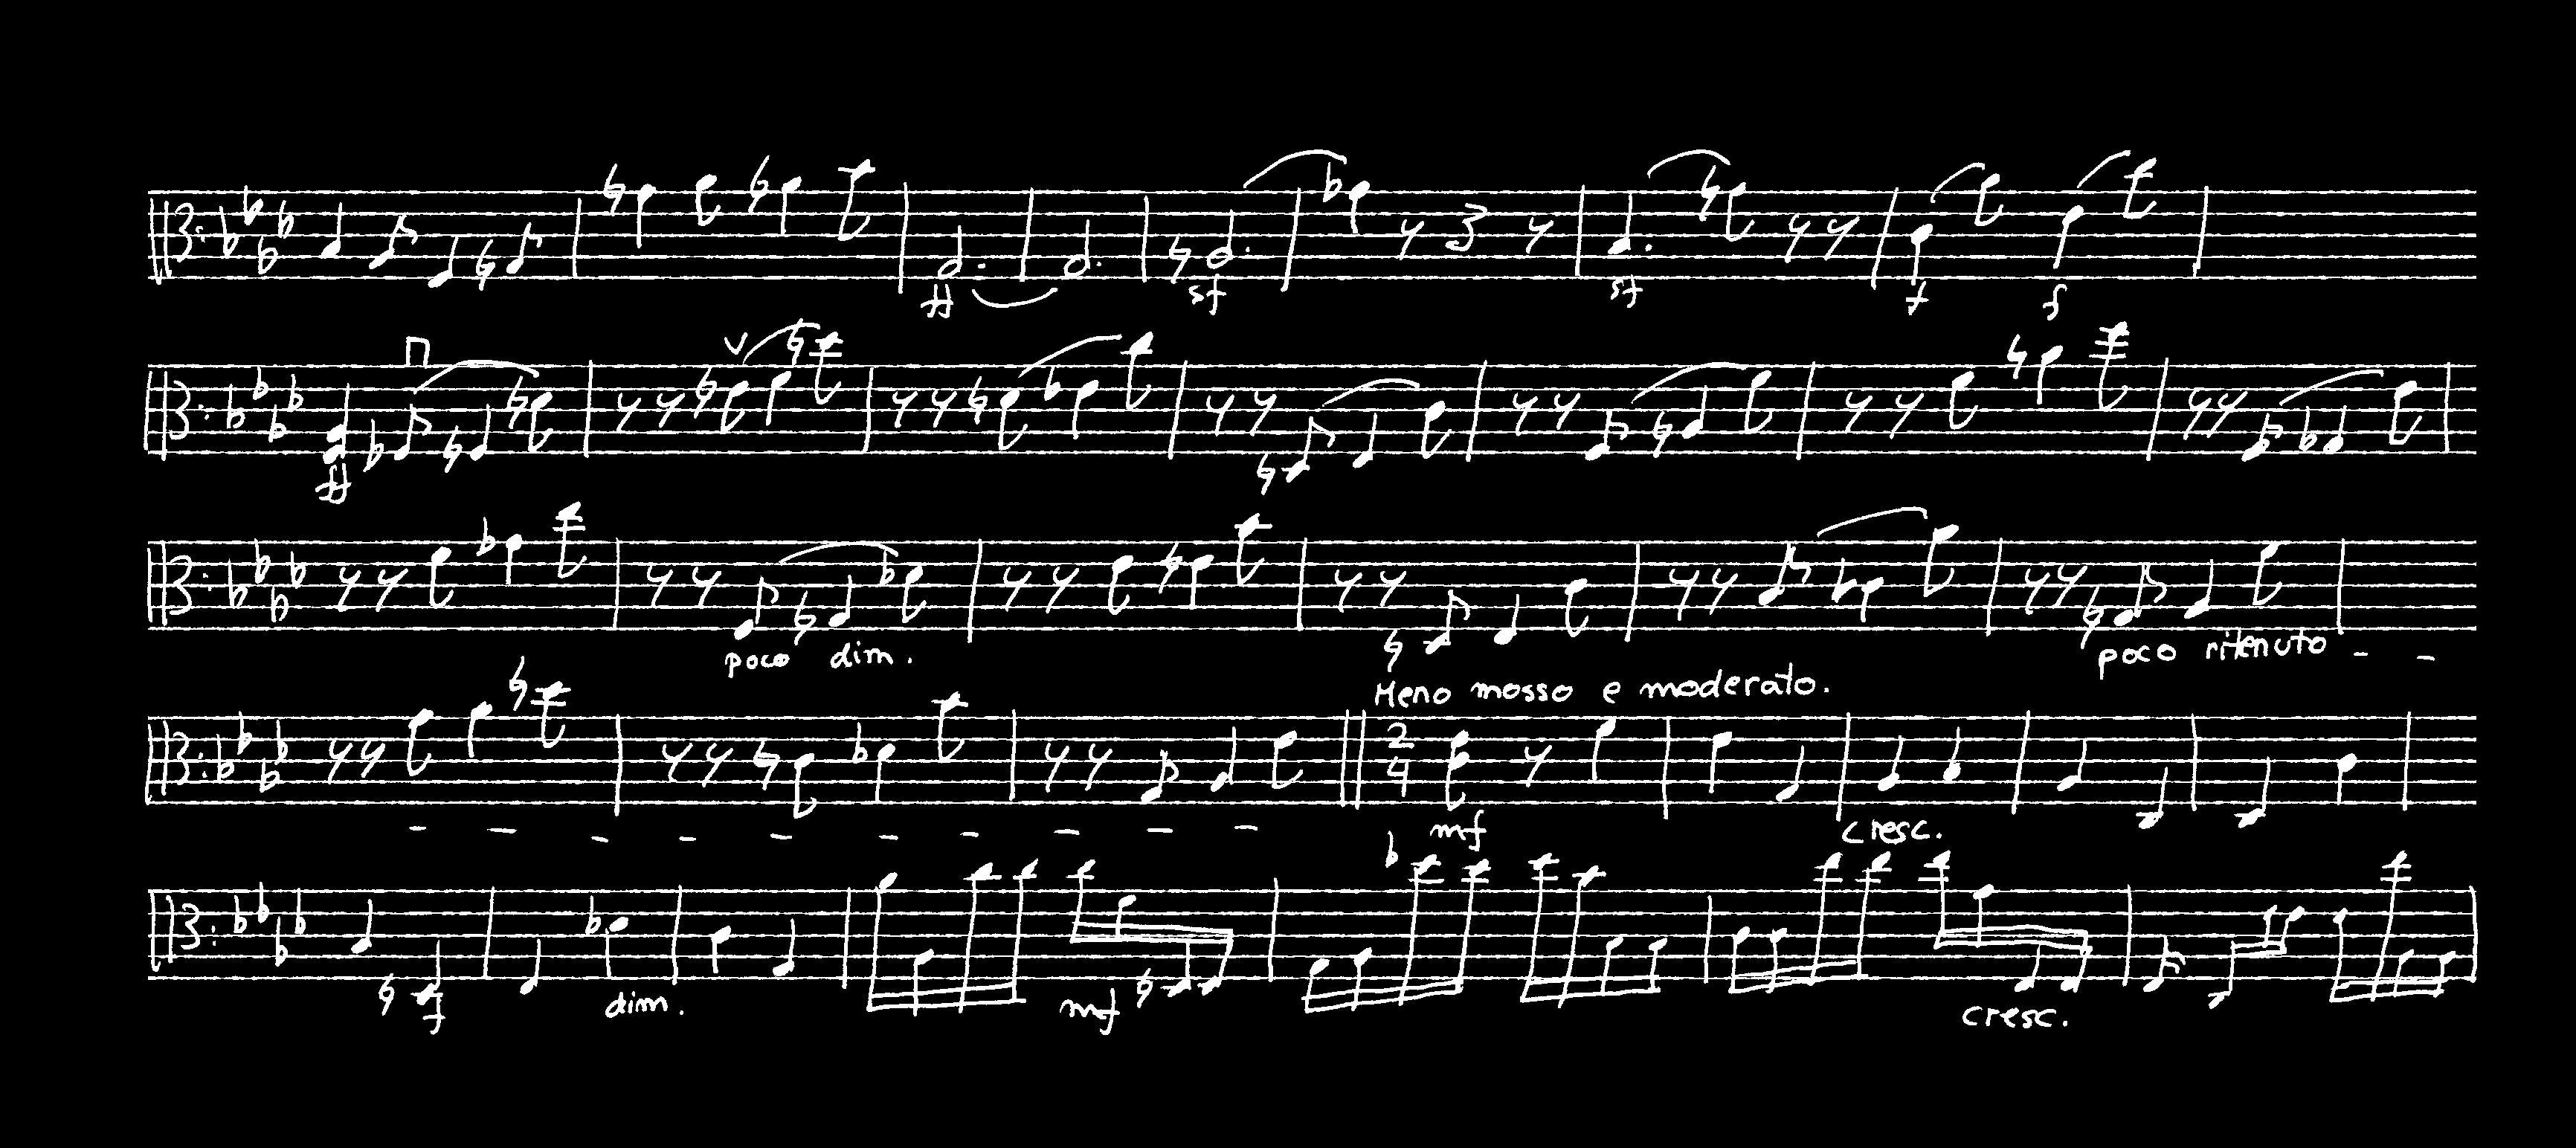 ff sf sf f f
ff
poco dim. poco ritenuto - -
Meno mosso e moderato.
2 4
- - - - - - - - - - mf cresc.
f dim. mf cresc.